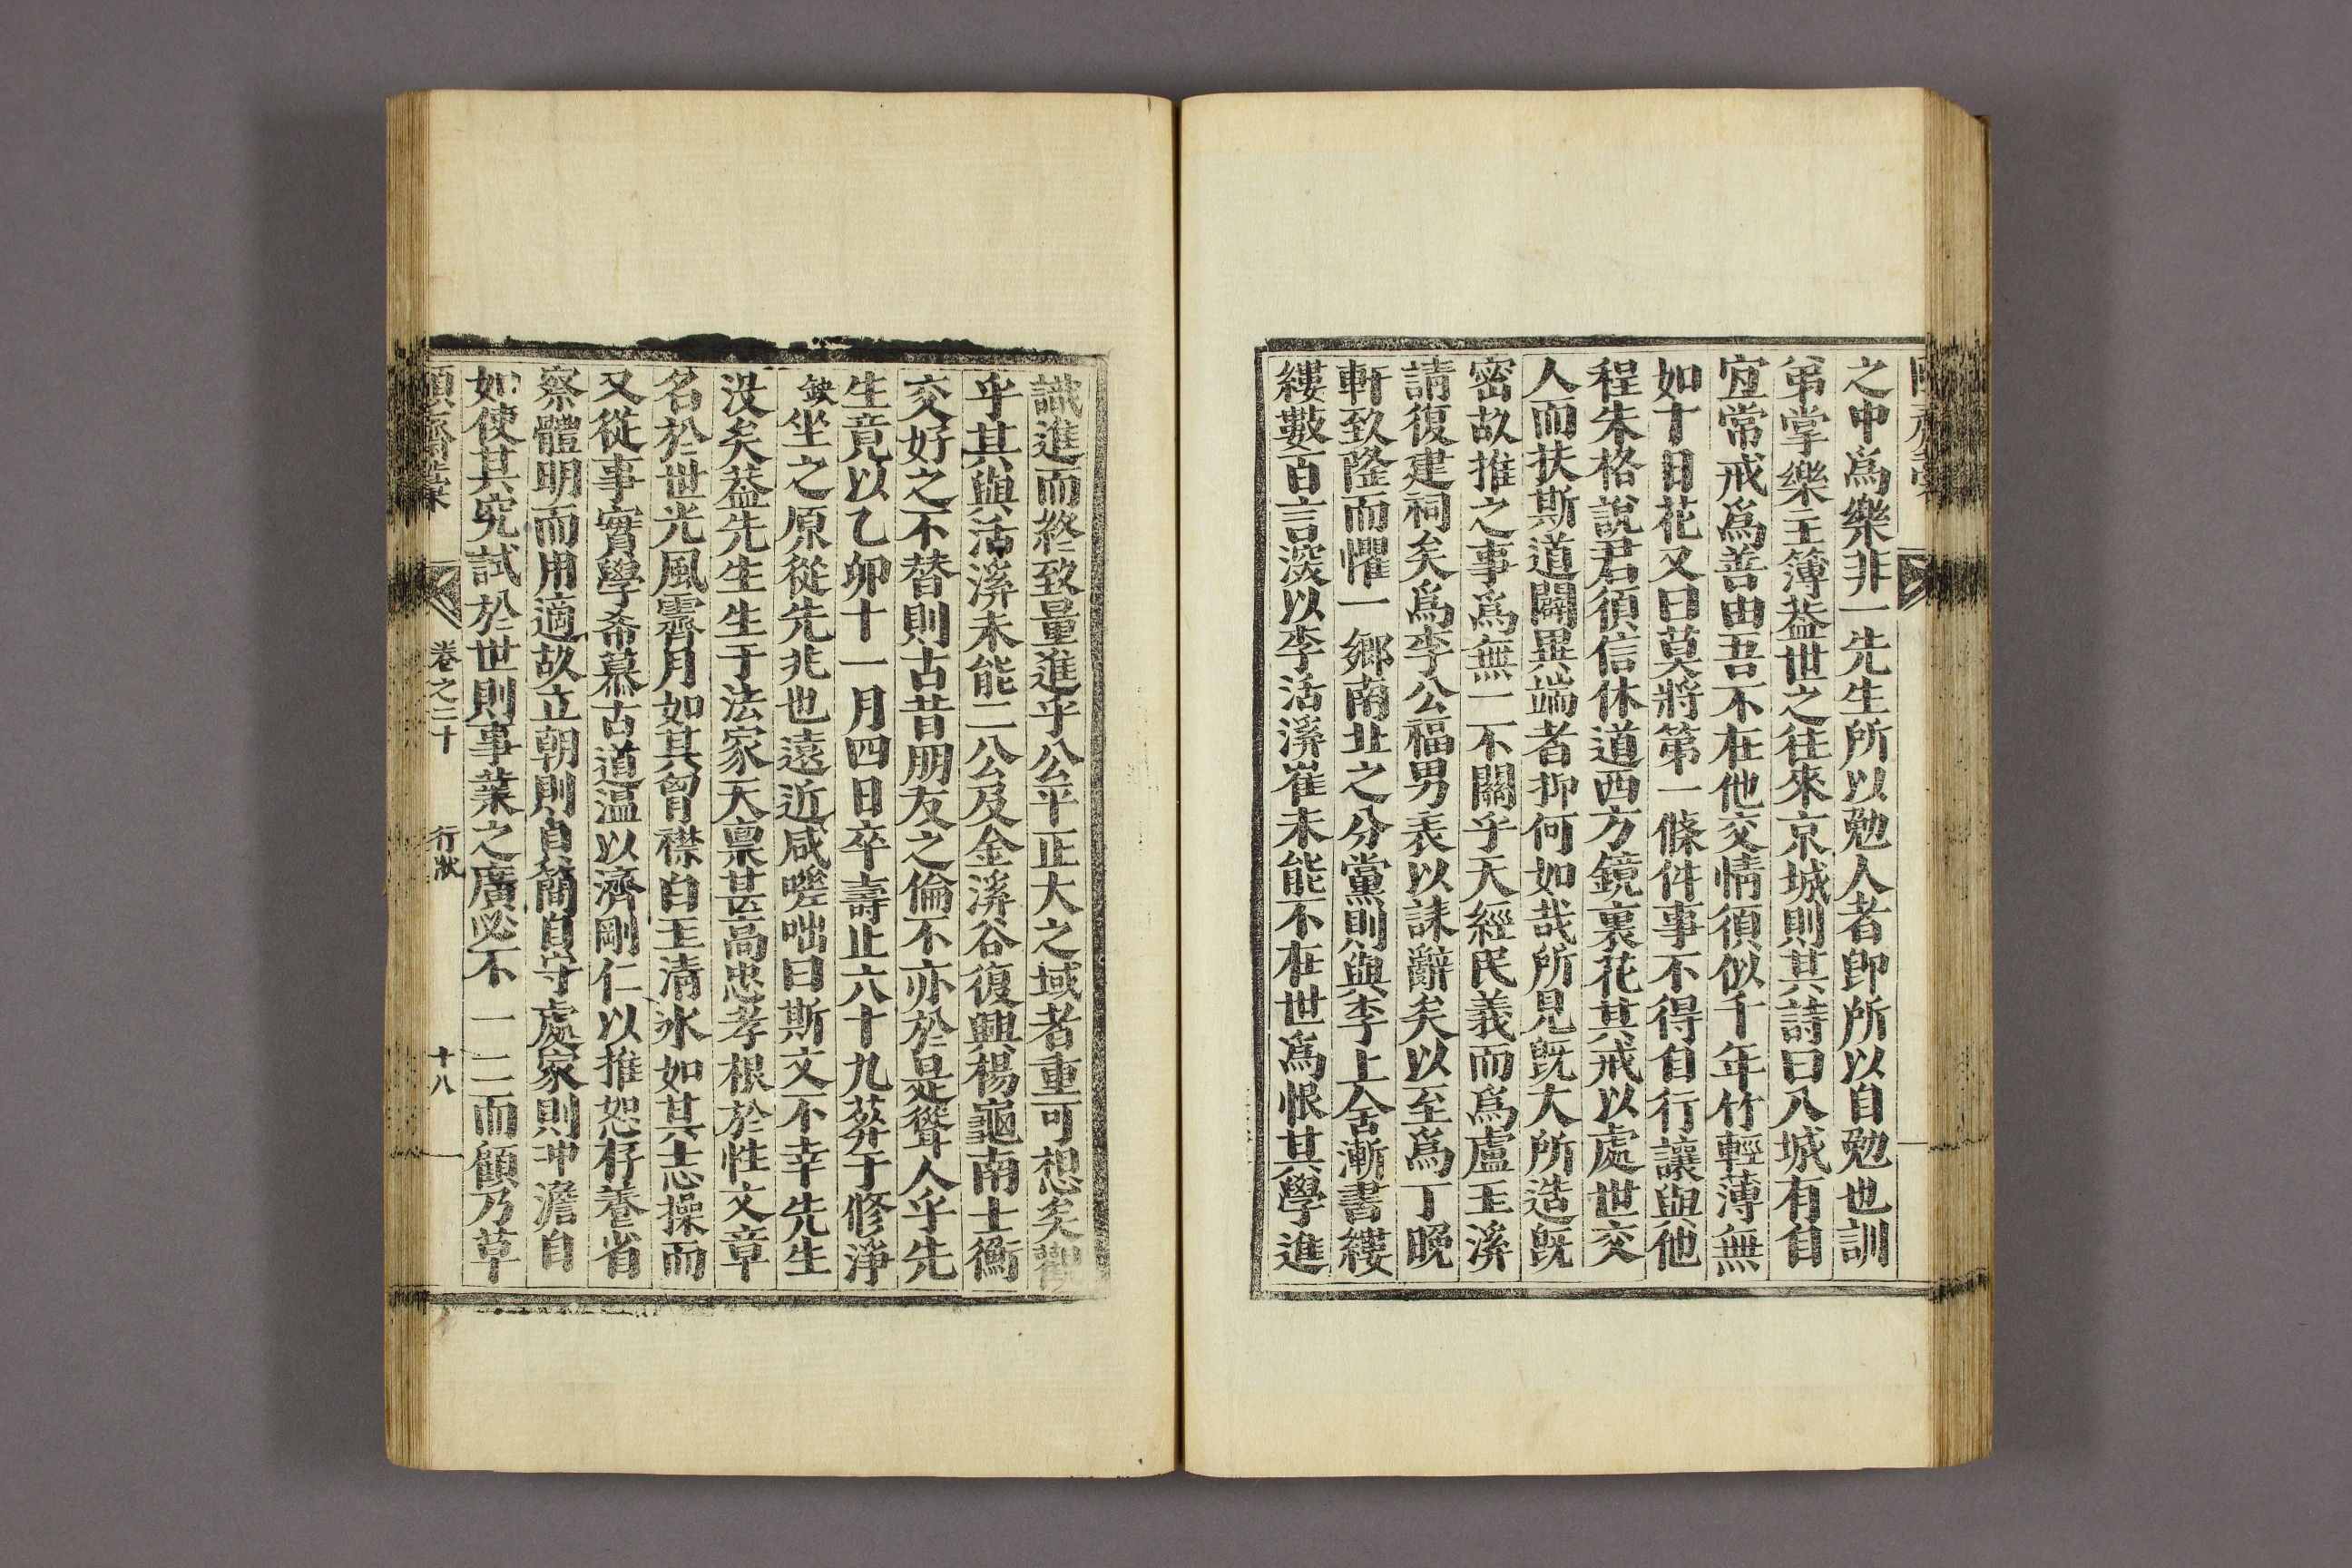 之中爲樂非一先生所以勉人者卽所以自勉也訓
弟掌樂主簿葢世之往來京城則其詩曰八城有自
宜常戒爲善由吾不在他交情須似千年竹輕薄無
如十日花又曰莫將第一條件事不得自行讓與他
程朱格說君須信休道西方鏡裏花其戒以處世交
人而扶斯道闢異端者抑何如哉所見旣大所造旣
密故推之事爲無一不關乎天經民義而爲盧玉溪
請復建祠矣爲李公福男表以誄辭矣以至爲丁晩
軒致隆而懼一鄕南北之分黨則與李上舍漸書縷
縷數百言深以李活溪崔未能不在世爲恨其學進
識進而終致量進乎公平正大之域者重可想矣觀
乎其與活溪未能二公及金溪谷復興楊龜南士衡
交好之不替則古昔朋友之倫不亦於是聳人乎先
生竟以乙卯十一月四日卒壽止六十九葬于修淨
缺坐之原從先兆也遠近咸嗟咄曰斯文不幸先生
没矣葢先生生于法家天禀甚高忠孝根於性文章
名於世光風霽月如其胷襟白玉淸冰如其志操而
又從事實學希慕古道温以濟剛仁以推恕存養省
察體明而用適故立朝則自簡自守處家則冲澹自
如使其究試於世則事業之廣必不一二而顧乃草
卷之二十 行狀 十八